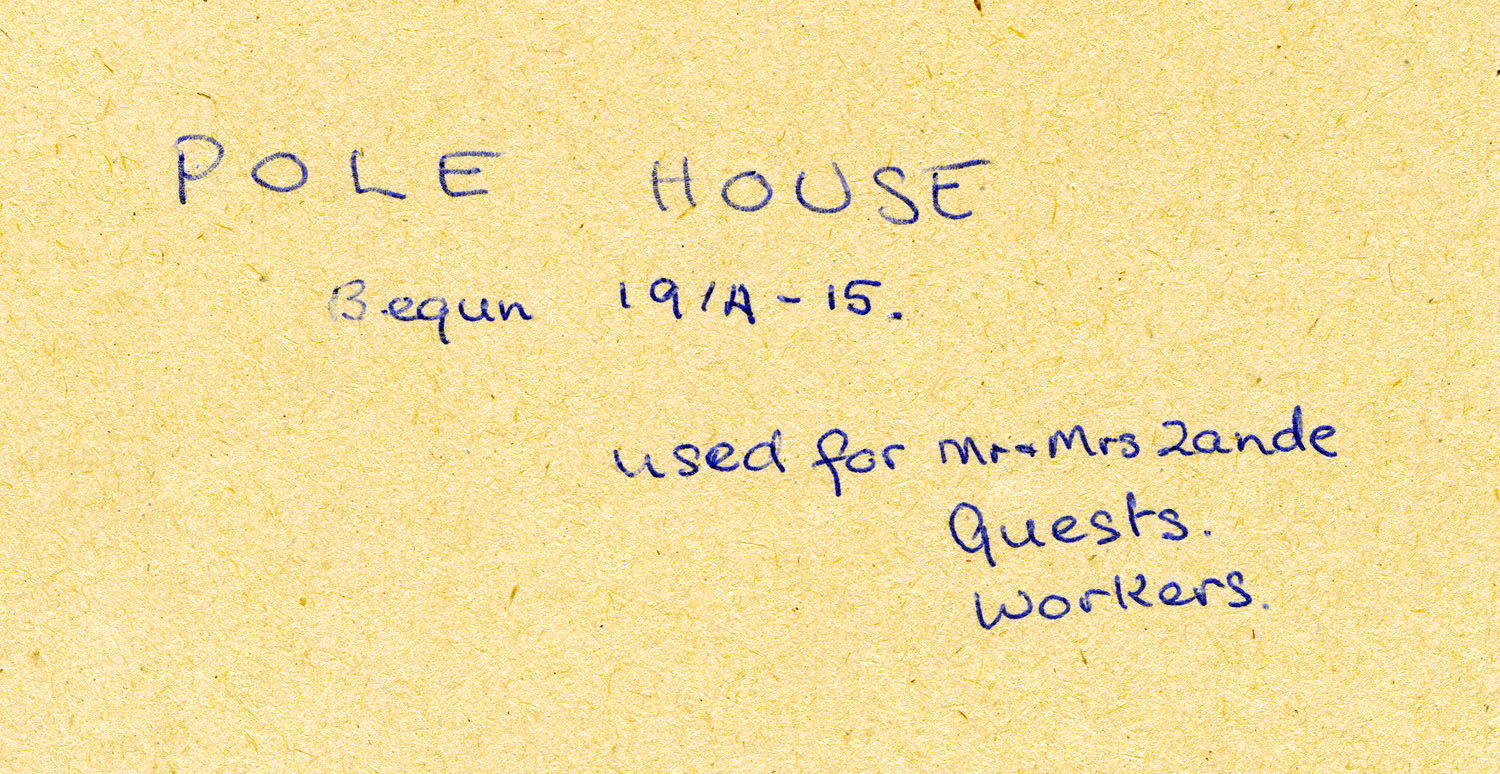 POLE HOUSE
Begun 1914-15.
used for Mr & Mrs Zande
Guests.
Workers.